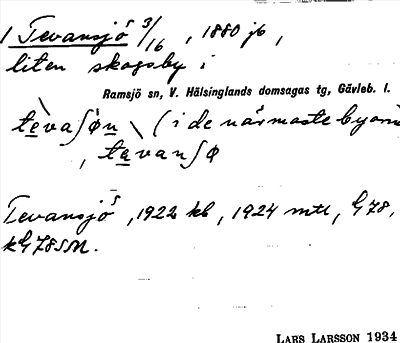 1 Tevansjö s 3/16, 1880 jb,
liten skogsby i
Ramsjö sn, V. Hälsinglands domsagas tg, Gävleb. l.
tevaʃøn \ (i de närmaste byarna
, tavanʃø
Tevansjö s, 1922 kb, 1924 mtl, G78,
kG78SM.
LARS LARSSON 1934